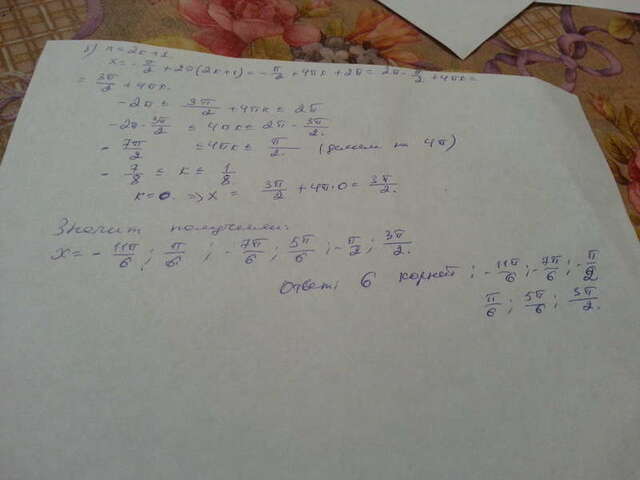 3) n=2k+1.
x=-π/2+2π(2k+1)=-π/2+4πk+2π=2π-π/2+4πk=
=3π/2+4πk.
-2π≤3π/2+4πk≤2π
-2π-3π/2≤4πk≤2π-3π/2.
-7π/2≤4πk≤π/2. (делим на 4π)
-7/8≤k≤1/8.
k=0. =>x=3π/2+4π·0=3π/2.
Значит получаем:
x=-11π/6; π/6; -7π/6; 5π/6; -π/2; 3π/2.
Ответ: 6 корней; -11π/6; -7π/6; -π/2
π/6; 5π/6; 3π/2.